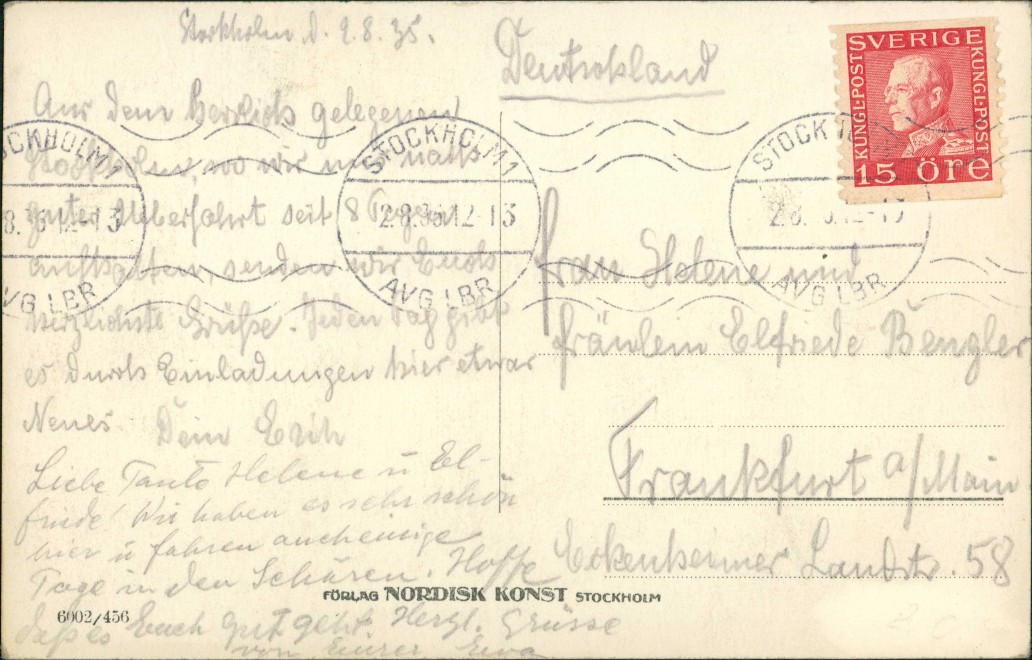 Stockholm d. 2.8.35.
Aus dem herrlich gelegenen
Stockholm, wo wir uns nach
guter Ueberfahrt seit 8 Tagen
aufhalten, senden wir Euch
herzlichste Grüße. Jeden Tag gibt
es durch Einladungen hier etwas
Neues.
Dein Erich
Liebe Tante Helene u El-
friede! Wir haben es sehr schön
hier u fahren auch einige
Tage in den Schären. Hoffe
daß es Euch gut geht. Herzl. Grüsse
von Eurer Ewa
Deutschland
SVERIGE
KUNGL·POST
KUNGL·POST
15 ÖRE
STOCKHOLM 1
2.8.35.12-13
AVG LBR
STOCKHOLM 1
2.8.35.12-13
AVG LBR
STOCK
2.8. 12-13
AVG LBR
Frau Helene und
Fräulein Elfriede Bengler
Frankfurt a/Main
Eckenheimer Landstr. 58
FÖRLAG NORDISK KONST STOCKHOLM
6002/456